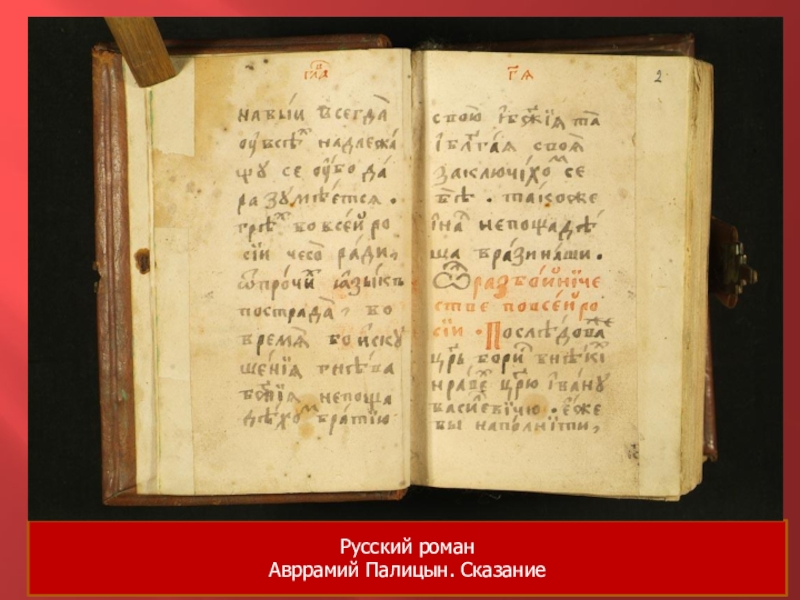 гла
навыи всегда
оу всѣх надлежа
щу се оубо да
разумѣется.
грѣх во всеи ро
сіи чесо ради,
ѿ прочих іазыкъ
пострада, во
время бо иску
шенія гнѣва
бжіия непоща
дѣхом братию
гя
2
свою ібжія та
і блгая своя
заключіхом се
бѣ. такоже
іна непощадѣ
ша врази наши.
ѿ разбоиніче
стве по всеи ро
сіи. Послѣдова же
црь борис в нѣкі
нравѣ црю івану
василевічю. еже
бы наполніти,
Русский роман
Авррамий Палицын. Сказание